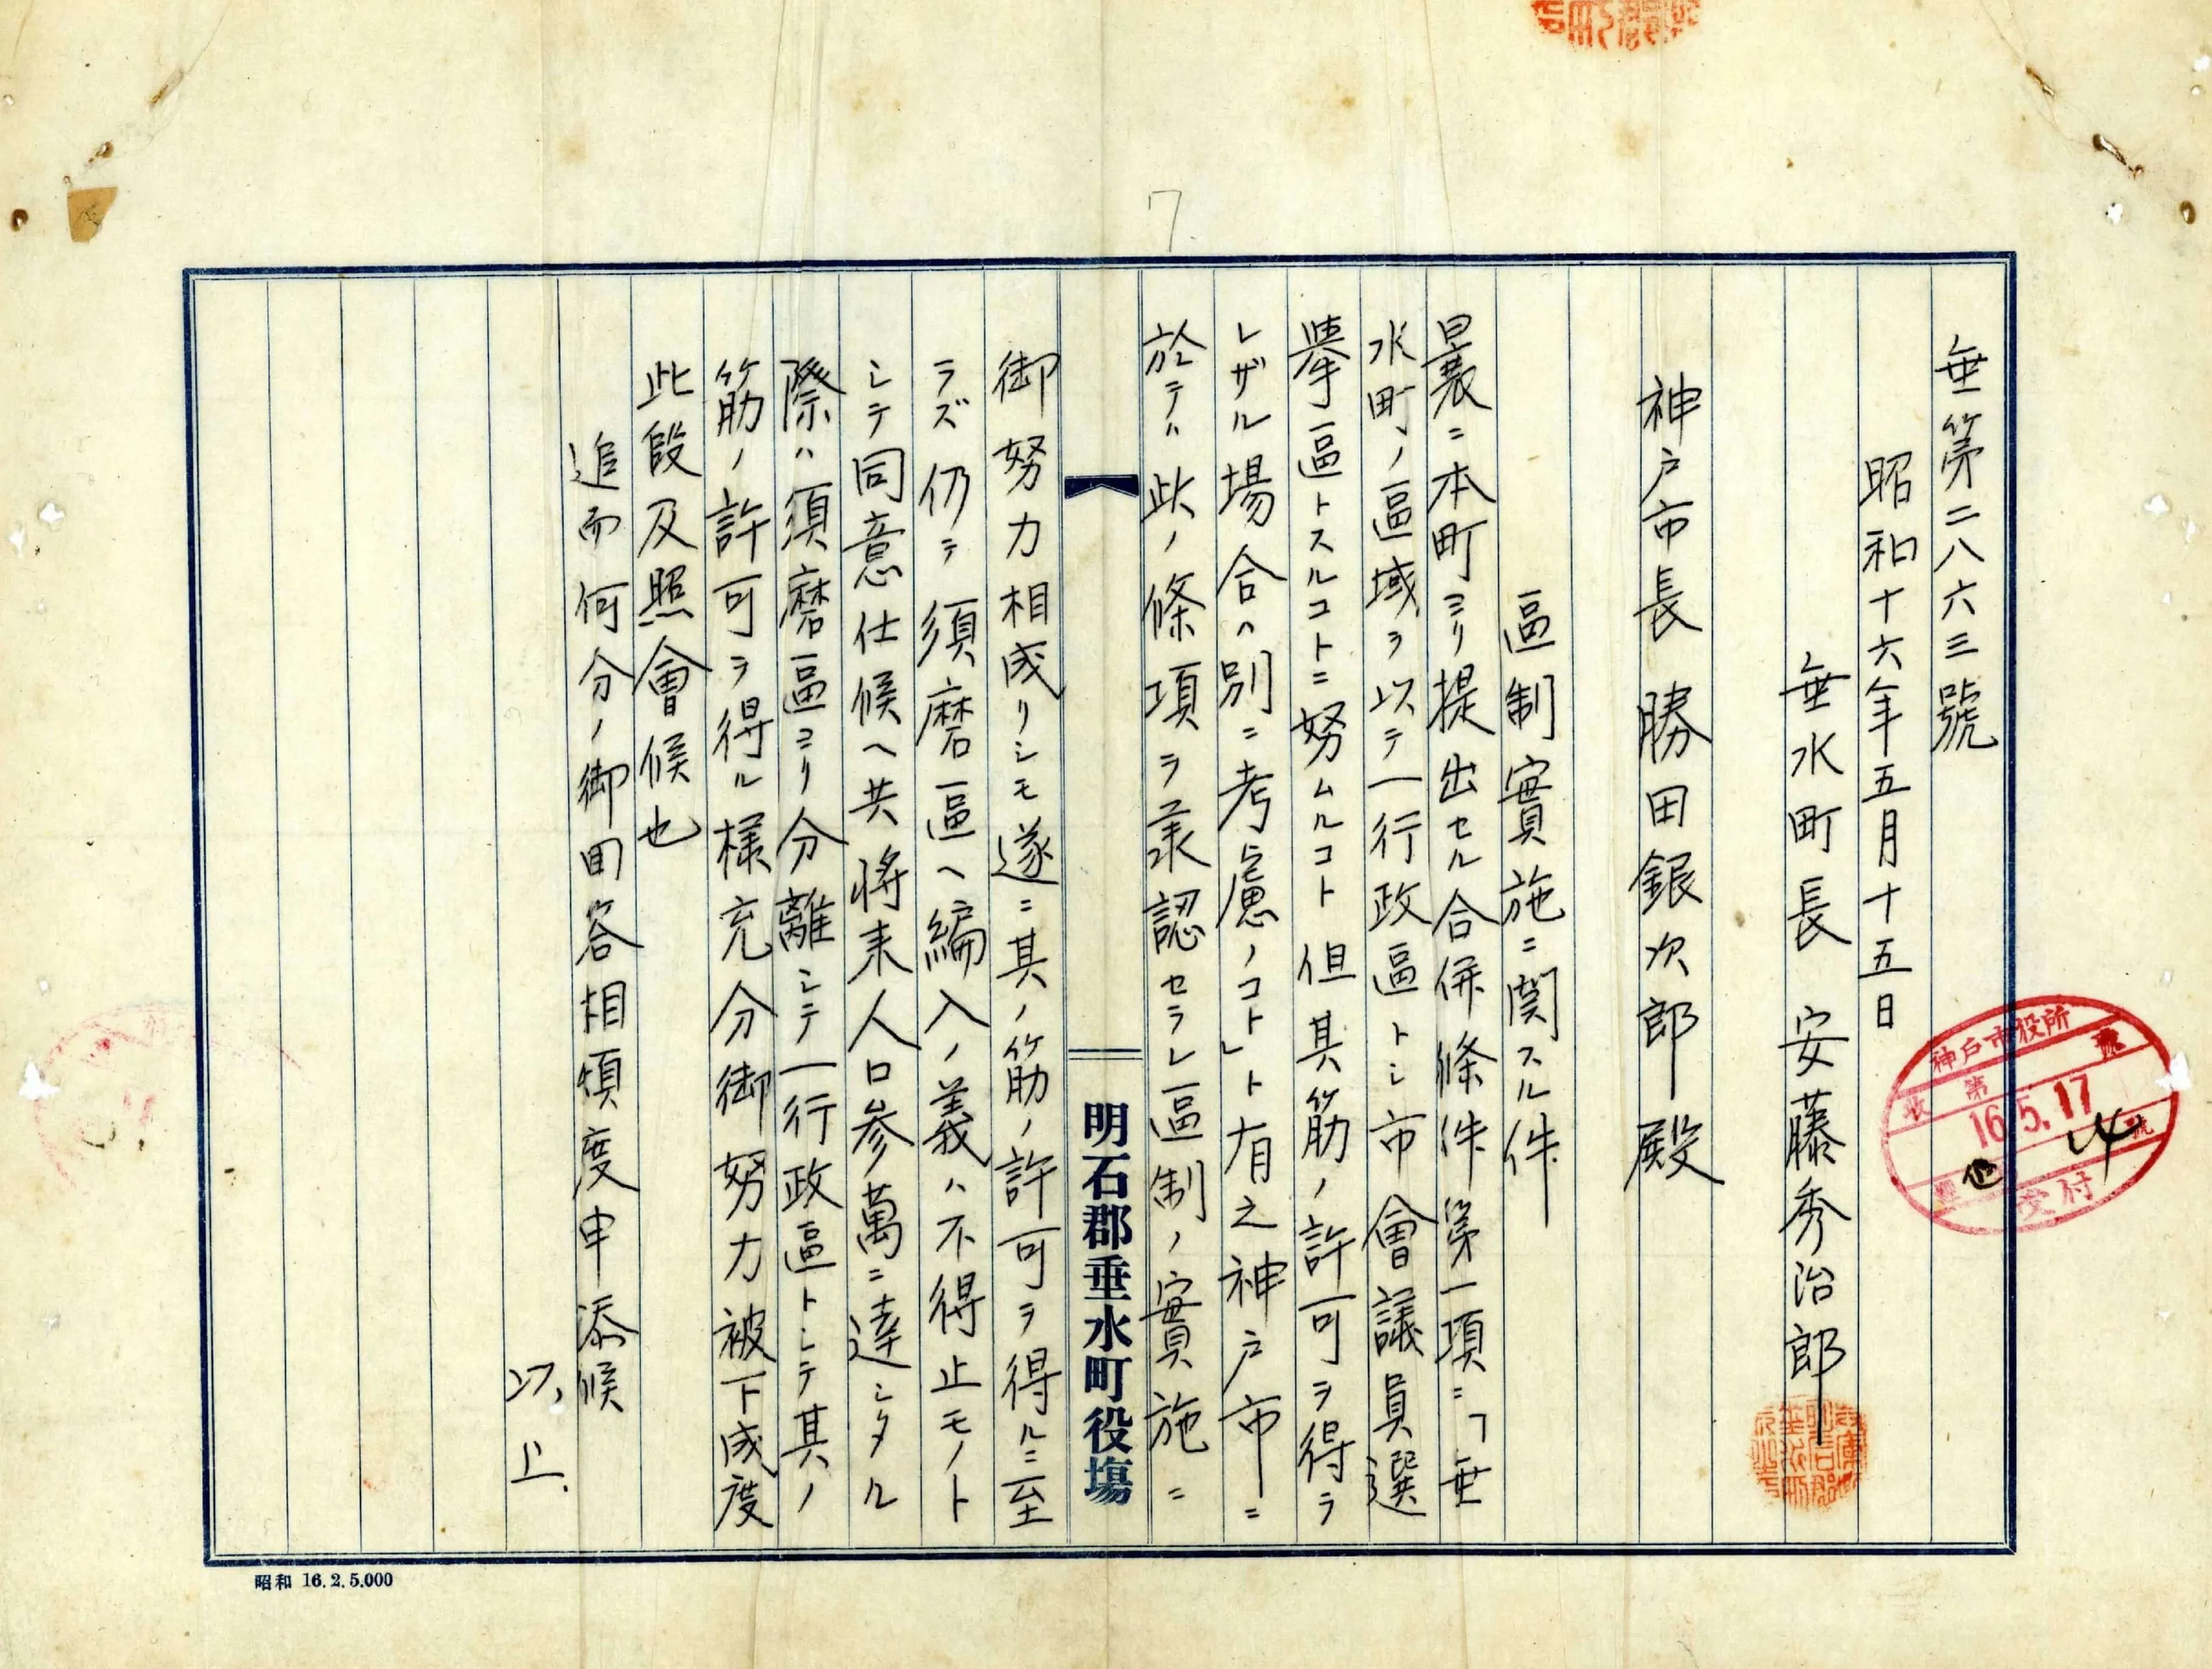 垂第二八六三號
昭和十六年五月十五日
垂水町長 安藤秀治郎
神戸市長 勝田銀次郎 殿
區制實施ニ関スル件
曩ニ本町ヨリ提出セル合併條件第一項ニ「垂
水町ノ區域ヲ以テ一行政區トシ市會議員選
擧區トスルコトニ努ムルコト 但其筋ノ許可ヲ得ラ
レザル場合ハ別ニ考慮ノコト」ト有之神戸市ニ
於テハ此ノ條項ヲ承認セラレ區制ノ實施ニ
明石郡垂水町役場
御努力相成リシモ遂ニ其ノ筋ノ許可ヲ得ルニ至
ラズ仍テ須磨區ヘ編入ノ義ハ不得止モノト
シテ同意仕候ヘ共將来人口参萬ニ達シタル
際ハ須磨區ヨリ分離シテ一行政區トシテ其ノ
筋ノ許可ヲ得ル様充分御努力被下成度
此段及照會候也
追而何分ノ御回答相煩度申添候
以上.
神戸市役所
收 第 號
16.5.17
交付
昭和 16.2.5.000
7